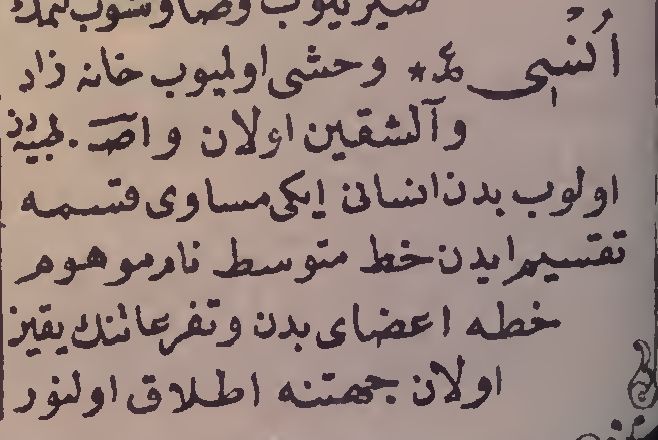 اُنْسِی ع * وحشی اولمیوب خانه زاد
وآلشقین اولان واصـ. طبیه دن
اولوب بدن انسانی ایکی مساوی قسمـه
تقسیم ایدن خط متوسط نام موهوم
خطه اعضای بدن وتفرعاتنك یقین
اولان جهتنه اطلاق اولنور